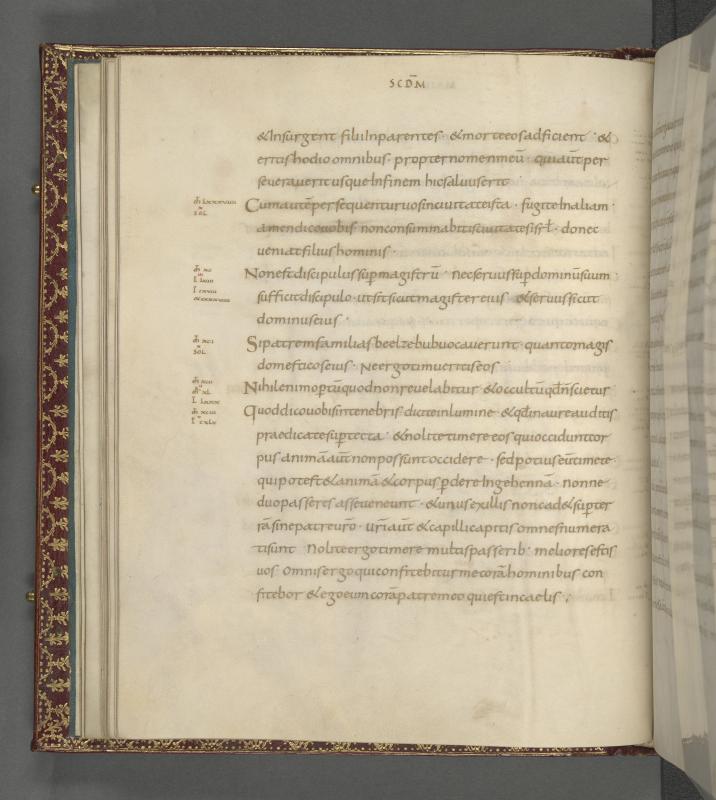 SCDM̄
& Insurgent filii In parentes & morte eos adficient · &
eritis hodio omnibus propter nomen meū · qui aut̄ per
severaverit usque In finem hic salvus erit
Cum autē persequentur vos in civitate ista · fugite In aliam ·
amen dico vobis non consummabitis civitates isrł · donec
veniat filius hominis ·
Non est discipulus sup̄ magistrū · nec servus sup̄ dominum suum ·
sufficit discipulo ut sit sicut magister eius & servus sicut
dominus eius ·
Si patrem familias beelzebub vocaverunt · quanto magis
domesticos eius · Ne ergo timueritis eos
Nihil enim opertū quod non revelabitur & occultū qd̄ n̄ scietur
Quod dico vobis in tenebris dicite in lumine & qd̄ in aure auditis
praedicate sup̄ tecta · & nolite timere eos qui occidunt cor
pus animā aut̄ non possunt occidere · sed potius eūtimete
qui potest & animā & corpus p̄dere In gehennā · nonne
duo passeres asse veneunt · & unus ex illis non cad& sup̄ ter
rā sine patre vr̄o · vr̄i aut̄ & capilli capitis omnes numera
ti sunt Nolite ergo timere multis passerib· meliores estis
vos Omnis ergo qui confitebitur me corā hominibus con
fitebor & ego eum corā patre meo qui est in caelis ;